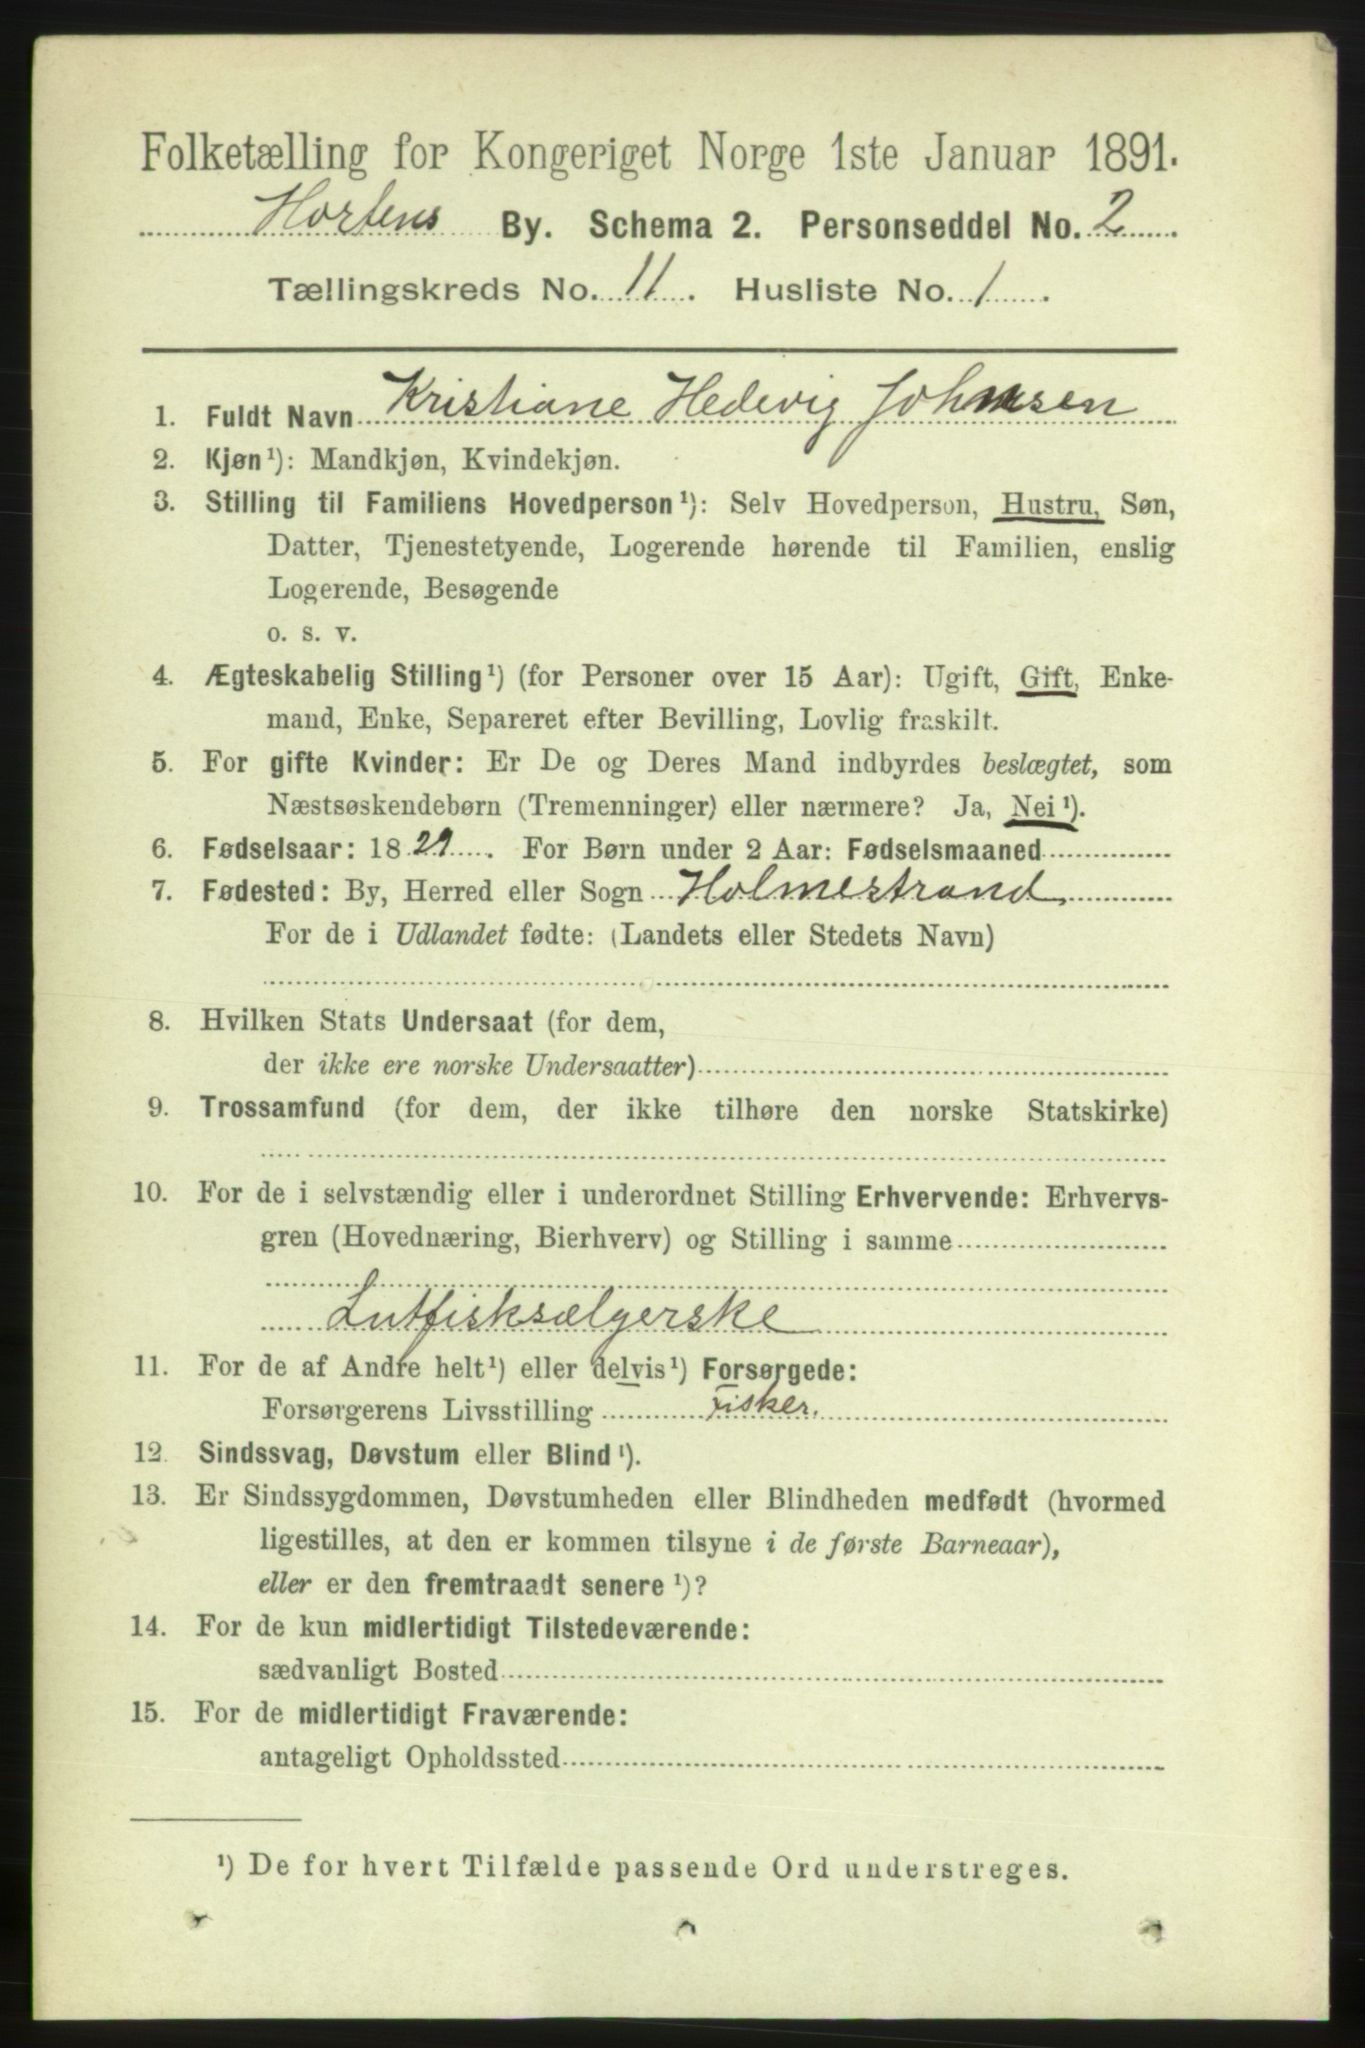 Folketælling for Kongeriget Norge 1ste Januar 1891.
Hortens By. Schema 2. Personseddel No. 2
Tællingskreds No. 11. Husliste No. 1.
1. Fuldt Navn Kristiane Hedevig Johnsen
2. Kjøn¹): Mandkjøn, Kvindekjøn.
3. Stilling til Familiens Hovedperson¹): Selv Hovedperson, Hustru, Søn,
Datter, Tjenestetyende, Logerende hørende til Familien, enslig
Logerende, Besøgende
o. s. v.
4. Ægteskabelig Stilling¹) (for Personer over 15 Aar): Ugift, Gift, Enke-
mand, Enke, Separeret efter Bevilling, Lovlig fraskilt.
5. For gifte Kvinder: Er De og Deres Mand indbyrdes beslægtet, som
Næstsøskendebørn (Tremenninger) eller nærmere? Ja, Nei¹).
6. Fødselsaar: 1829. For Børn under 2 Aar: Fødselsmaaned
7. Fødested: By, Herred eller Sogn Holmestrand,
For de i Udlandet fødte: (Landets eller Stedets Navn)
8. Hvilken Stats Undersaat (for dem,
der ikke ere norske Undersaatter)
9. Trossamfund (for dem, der ikke tilhøre den norske Statskirke)
10. For de i selvstændig eller i underordnet Stilling Erhvervende: Erhvervs-
gren (Hovednæring, Bierhverv) og Stilling i samme
Lutfisksælgerske
11. For de af Andre helt¹) eller delvis¹) Forsørgede:
Forsørgerens Livsstilling Fisker.
12. Sindssvag, Døvstum eller Blind¹).
13. Er Sindssygdommen, Døvstumheden eller Blindheden medfødt (hvormed
ligestilles, at den er kommen tilsyne i de første Barneaar),
eller er den fremtraadt senere¹)?
14. For de kun midlertidigt Tilstedeværende:
sædvanligt Bosted
15. For de midlertidigt Fraværende:
antageligt Opholdssted
¹) De for hvert Tilfælde passende Ord understreges.